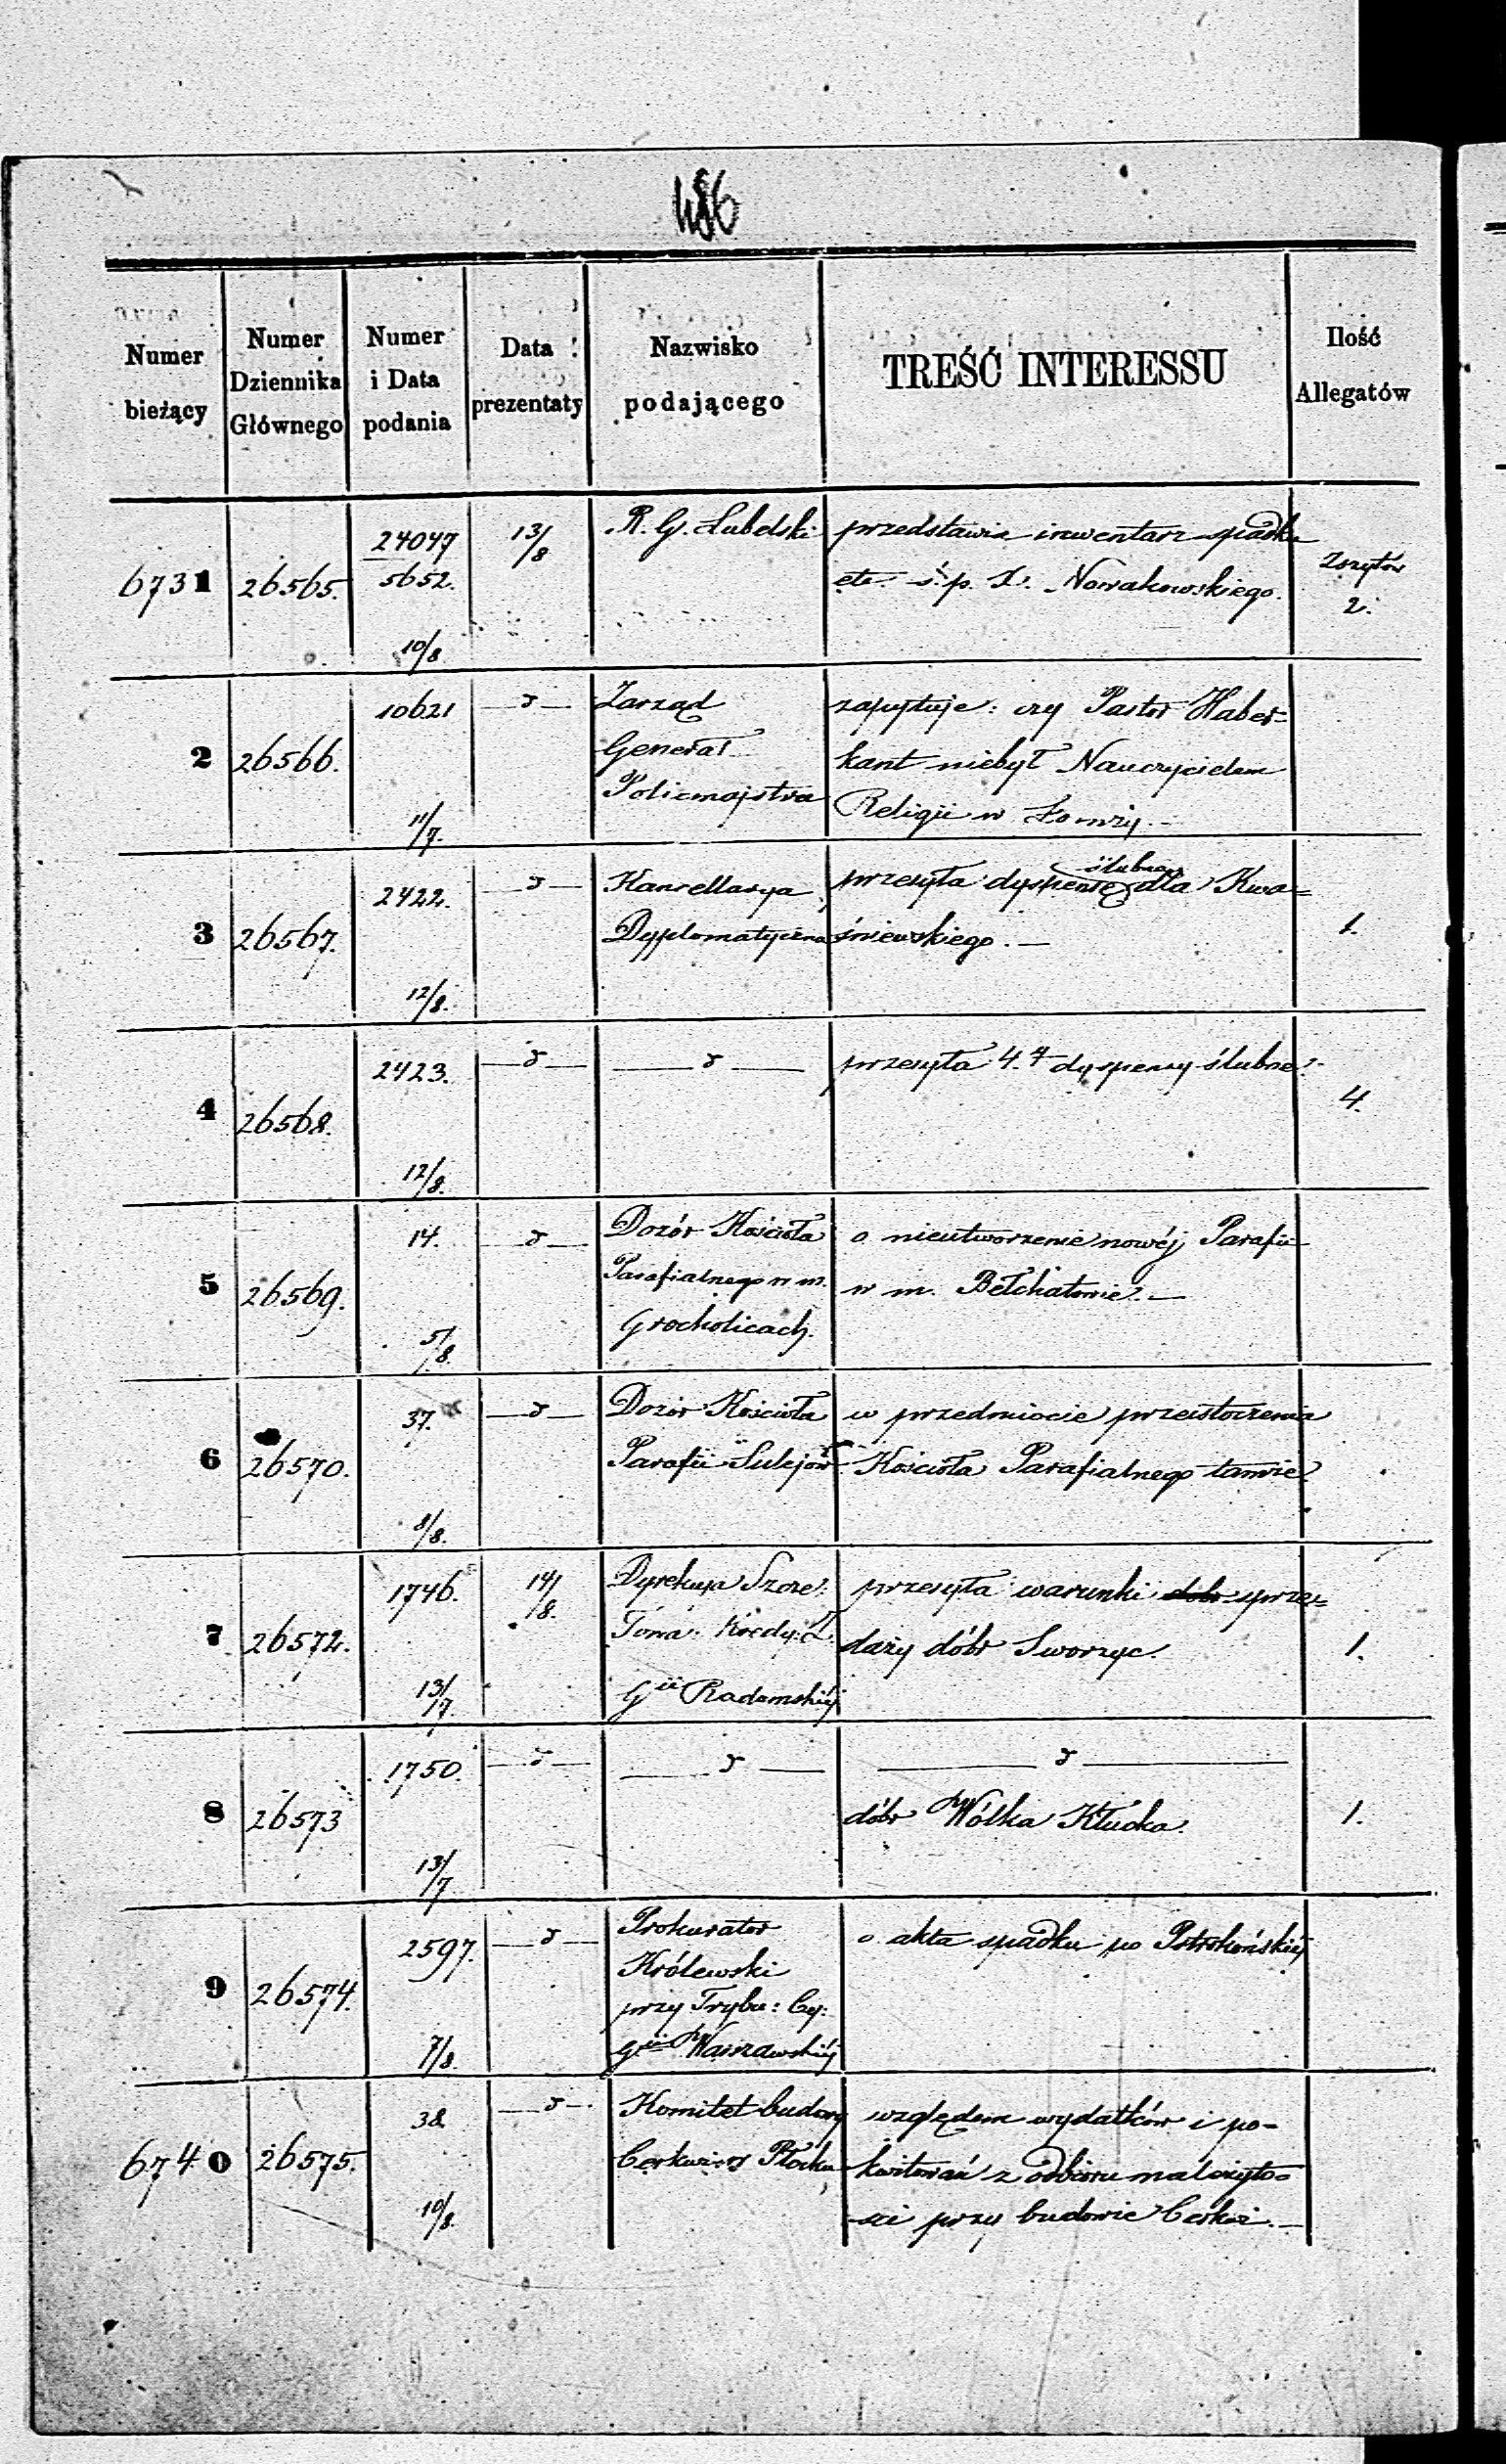 486
Numer bieżący
Numer Dziennika Głównego
Numer i Data podania
Data prezentaty
Nazwisko podającego
TREŚĆ INTERESSU
Ilość Allegatów
6731 26565. 24047 13/8 R. G. Lubelski przedstawia inwentarz spadku Zszytów
5652. etc. ś. p. X. Nowakowskiego. 2.
10/8
2 26566. 10621 —d— Zarząd zapytuje: czy Pastor Haber-
Generał kant niebył Nauczycielem
11/7. Policmajstra Religii w Łomży.—
3 26567. 2422. —d— Kancellarya przesyła dyspensę ślubną dla Kwa= 1.
Dyplomatyczna śniewskiego.—
12/8.
4 26568. 2423. —d— —d— przesyła 4.4 dyspensy ślubne. 4.
12/8.
5 26569. 14. —d— Dozór Kościoła o nieutworzenie nowéj Parafii
Parafialnego w m. w m. Bełchatowie.—
5/8. Grocholicach.
6 26570. 37. —d— Dozór Kościoła w przedmiocie przeistoczenia
Parafii Sulejów Kościoła Parafialnego tamże.
8/8.
7 26572. 1746. 14/8. Dyrekcya Szcze: przesyła warunki dóbr sprze=
Towa: Kredy: Z. daży dóbr Sworzyc. 1.
13/7. Gii Radomskiéj
8 26573 1750. —d— —d— —d—
dóbr Wólka Kłucka. 1.
13/7
9 26574. 2597. —d— Prokurator o akta spadku po Pstrokońskiéj
Królewski
przy Trybu: Cy:
7/8. Gii Warszawskiéj
6740 26575. 38 —d— Komitet budowy względem wydatków i po-
Cerkwi w Płocku kwitowań z odbioru należyto=
10/8. ści przy budowie Cerkwi.—